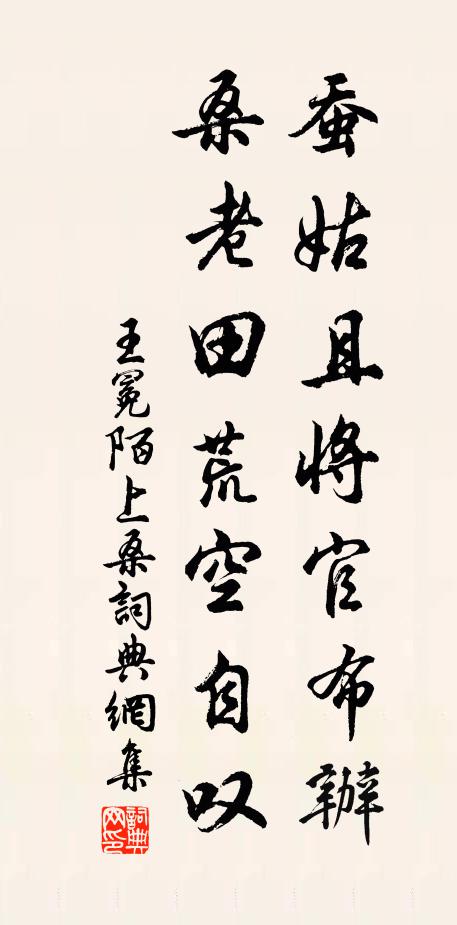 蚕姑且将官布辦
桑老田荒空自叹
王冕陌上桑詞典網集
詞典网印